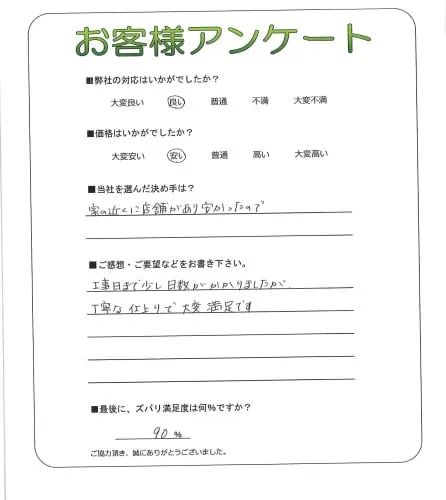 お客様アンケート
■弊社の対応はいかがでしたか?
大変良い 良い 普通 不満 大変不満
■価格はいかがでしたか?
大変安い 安い 普通 高い 大変高い
■当社を選んだ決め手は?
家の近くに店舗があり安かったので
■ご感想・ご要望などをお書き下さい。
工事日まで少し日数がかかりましたが
丁寧な仕上りで大変満足です
■最後に、ズバリ満足度は何%ですか?
90 %
ご協力頂き、誠にありがとうございました。